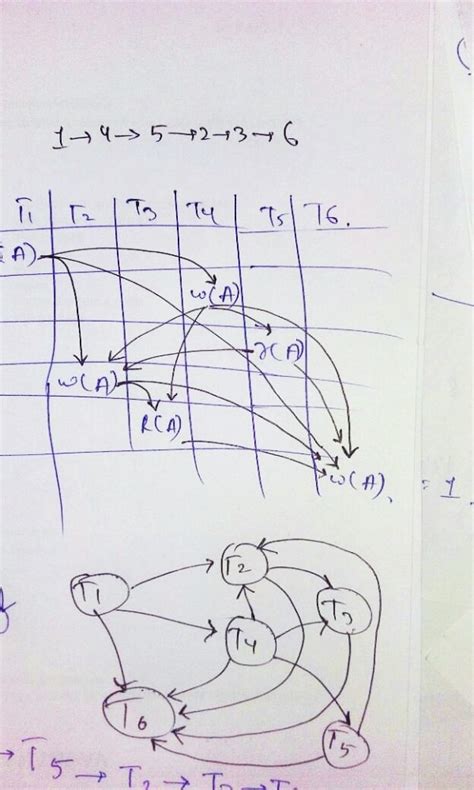 1→4→5→2→3→6
T1 T2 T3 T4 T5 T6.
A)
w(A)
r(A)
w(A)
R(A)
w(A). = 1
T1 T2
T3
T4
T6
T5
→ T5 → T2 →